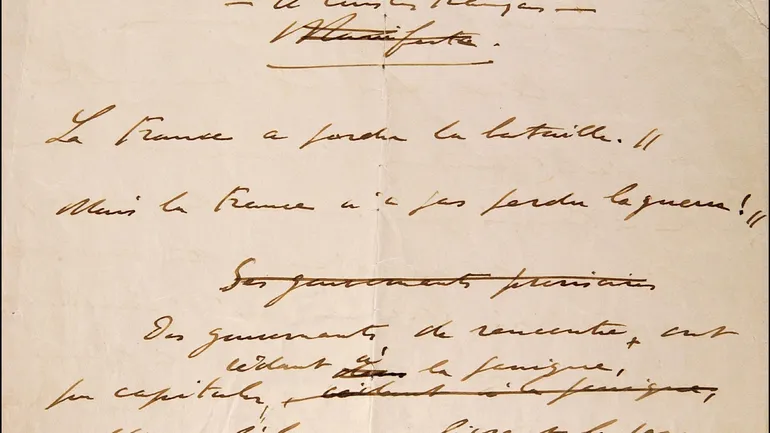 — A tous les Français —
Manifeste.
La France a perdu la bataille.//
Mais la France n'a pas perdu la guerre !//
Des gouvernants provisoires
Des gouvernants de rencontre + ont
cédant à la panique,
pu capituler, cédant à la panique,